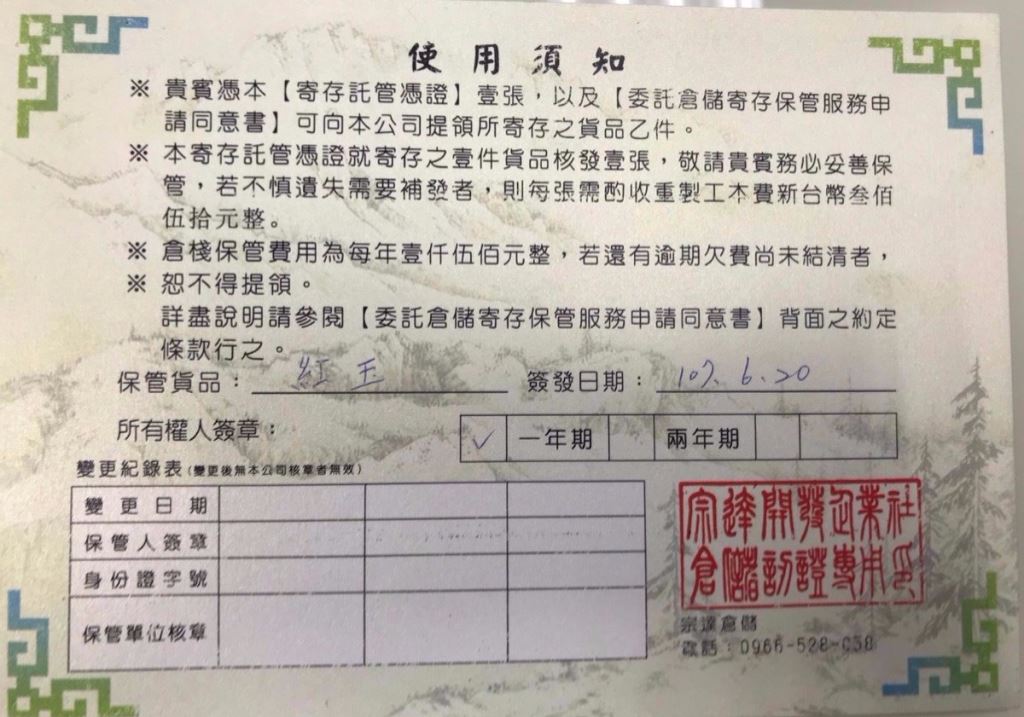 使用須知
※ 貴賓憑本【寄存託管憑證】壹張，以及【委託倉儲寄存保管服務申
請同意書】可向本公司提領所寄存之貨品乙件。
※ 本寄存託管憑證就寄存之壹件貨品核發壹張，敬請貴賓務必妥善保
管，若不慎遺失需要補發者，則每張需酌收重製工本費新台幣叁佰
伍拾元整。
※ 倉棧保管費用為每年壹仟伍佰元整，若還有逾期欠費尚未結清者，
※ 恕不得提領。
詳盡說明請參閱【委託倉儲寄存保管服務申請同意書】背面之約定
條款行之。
保管貨品：紅玉 簽發日期：107. 6. 20
所有權人簽章： ✓ 一年期 兩年期
變更紀錄表(變更後無本公司核章者無效)
變更日期
保管人簽章
身份證字號
保管單位核章
宗達開發企業社
倉儲訪證專用印
宗達倉儲
電話：0966-528-038